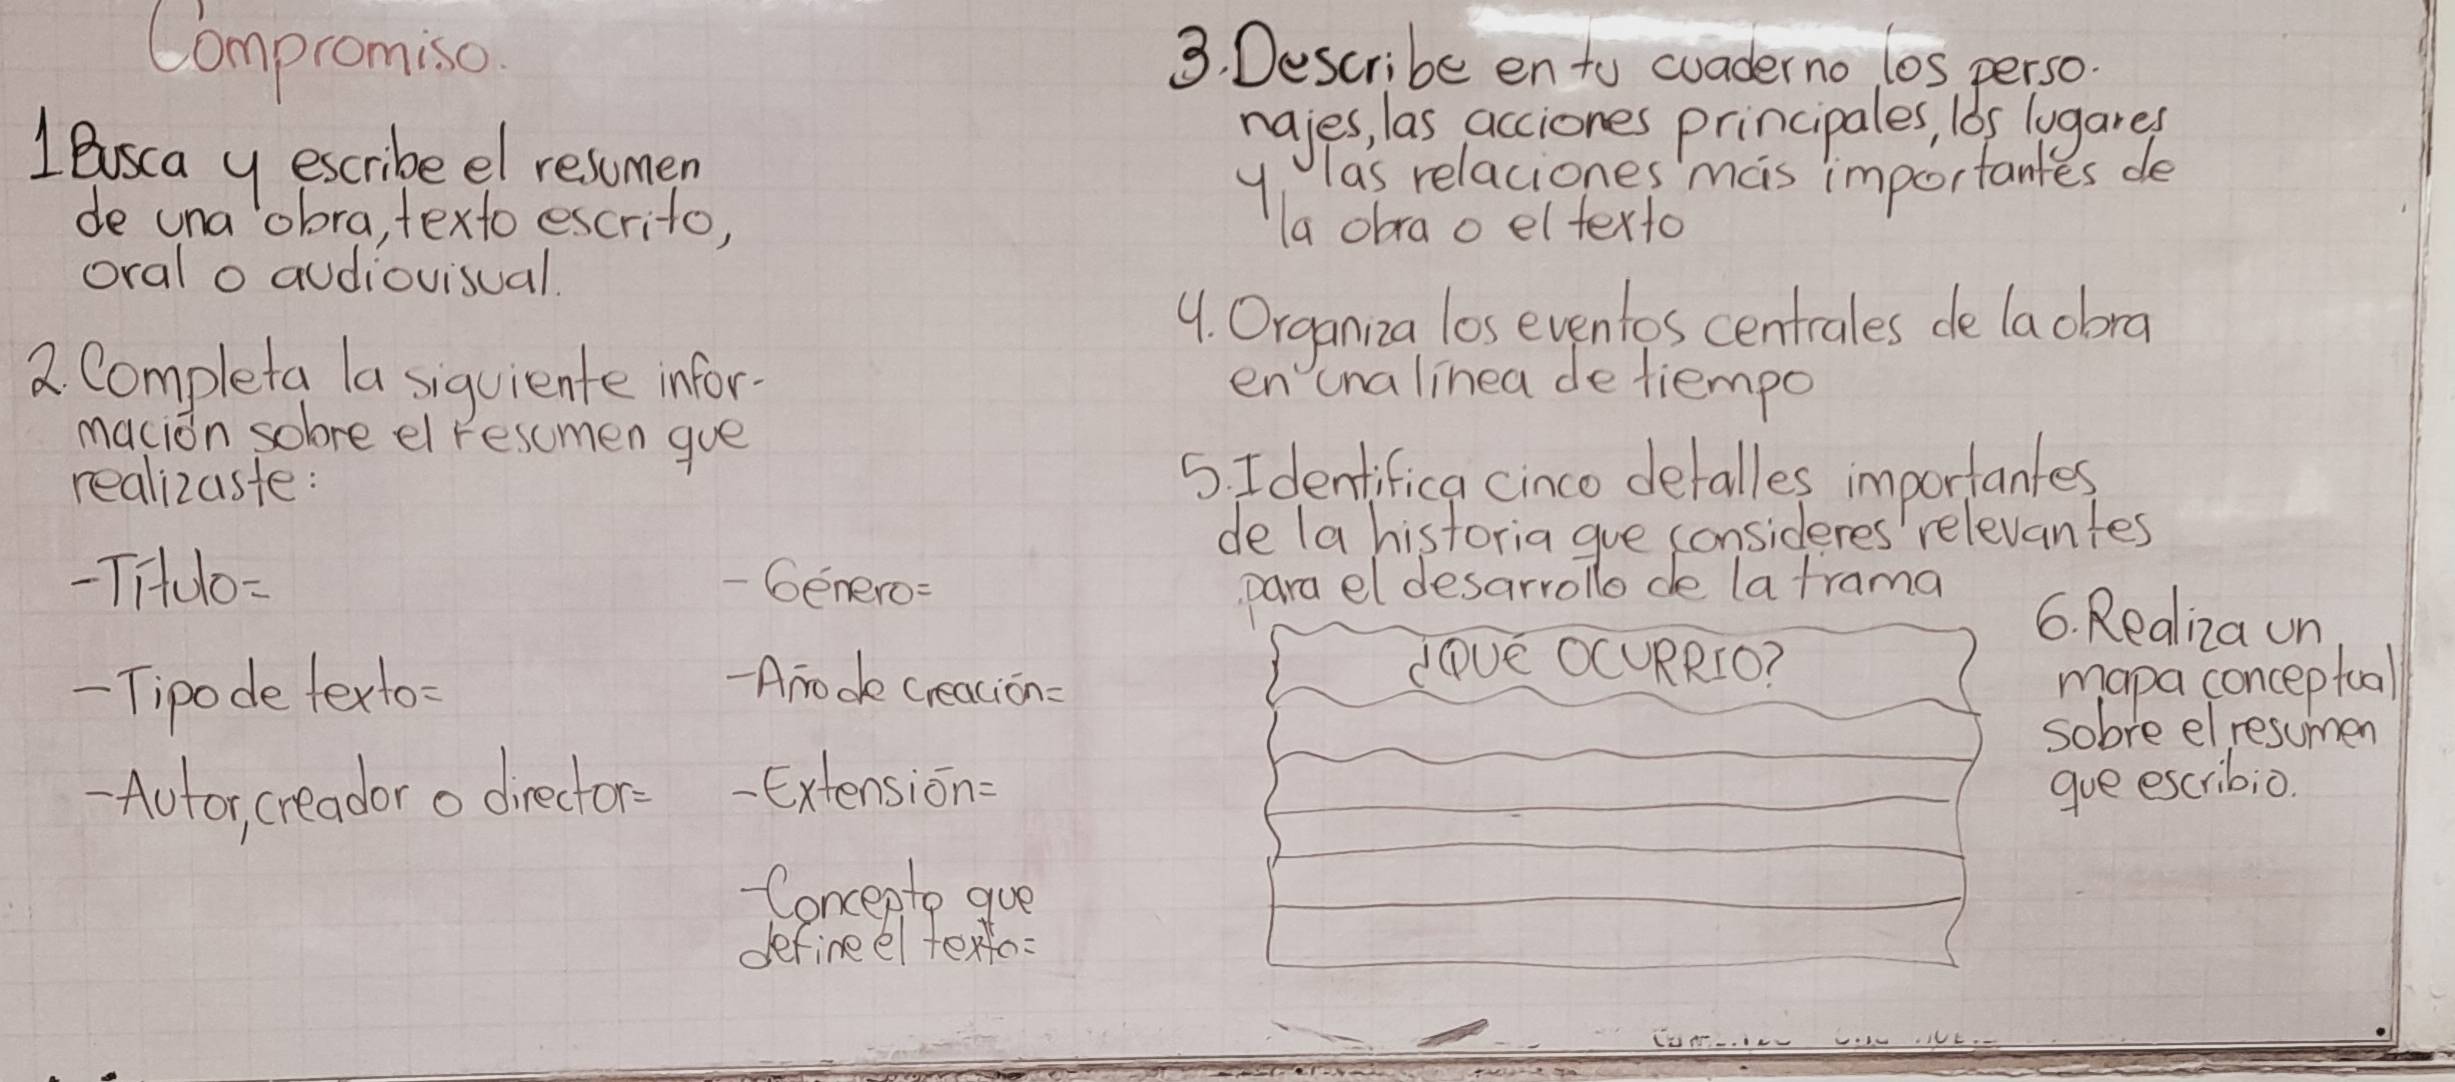 Compromiso.
1 Busca y escribe el resumen
de una obra, texto escrito,
oral o audiovisual.
2. Completa la siguiente infor-
mación sobre el resumen que
realizaste:
- Título=
- Tipo de texto=
- Autor, creador o director=
- Género=
- Año de creación=
- Extensión=
- Concepto que
define el texto=
3. Describe en tu cuaderno los perso-
najes, las acciones principales, los lugares
y las relaciones más importantes de
la obra o el texto
4. Organiza los eventos centrales de la obra
en una línea de tiempo
5. Identifica cinco detalles importantes
de la historia que consideres relevantes
para el desarrollo de la trama
¿QUÉ OCURRIO?
6. Realiza un
mapa conceptual
sobre el resumen
que escribio.